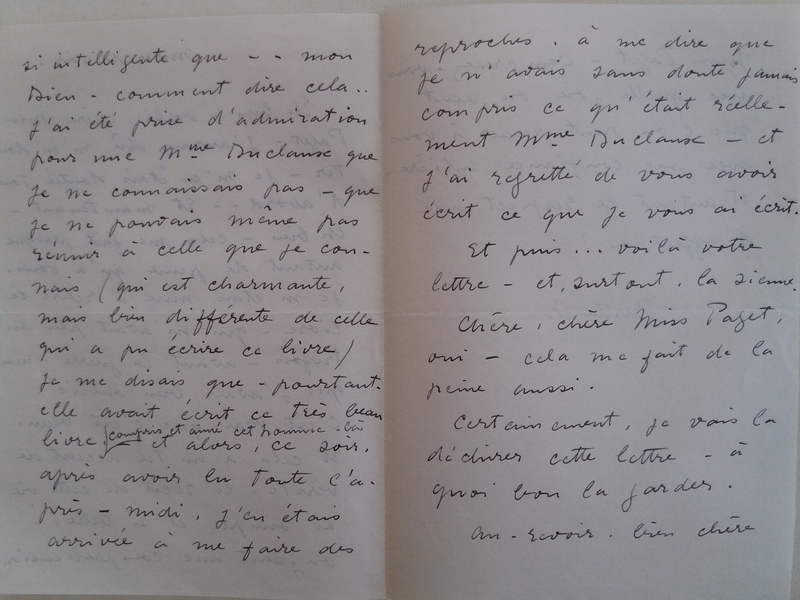 si intelligente que - - mon
Dien - comment dire cela..
J'ai été prise d'admiration
pour une Mme Duclaux que
je ne connaissais pas - que
je ne pouvais même pas
réunir à celle que je con-
nais (qui est charmante,
mais bien différente de celle
qui a pu écrire ce livre)
Je me disais que - pourtant.
elle avait écrit ce très beau
livre, compris et aimé cet homme-là
et alors, ce soir,
après avoir lu toute l'a-
près-midi, j'en étais
arrivée à me faire des
reproches. à me dire que
je n'avais sans doute jamais
compris ce qu'était réelle-
ment Mme Duclaux - et
j'ai regretté de vous avoir
écrit ce que je vous ai écrit.
Et puis... voilà votre
lettre - et, surtout, la sienne.
Chère, chère Miss Paget,
oui - cela me fait de la
peine aussi.
Certainement, je vais la
déchirer cette lettre - à
quoi bon la garder.
Au-revoir. bien chère